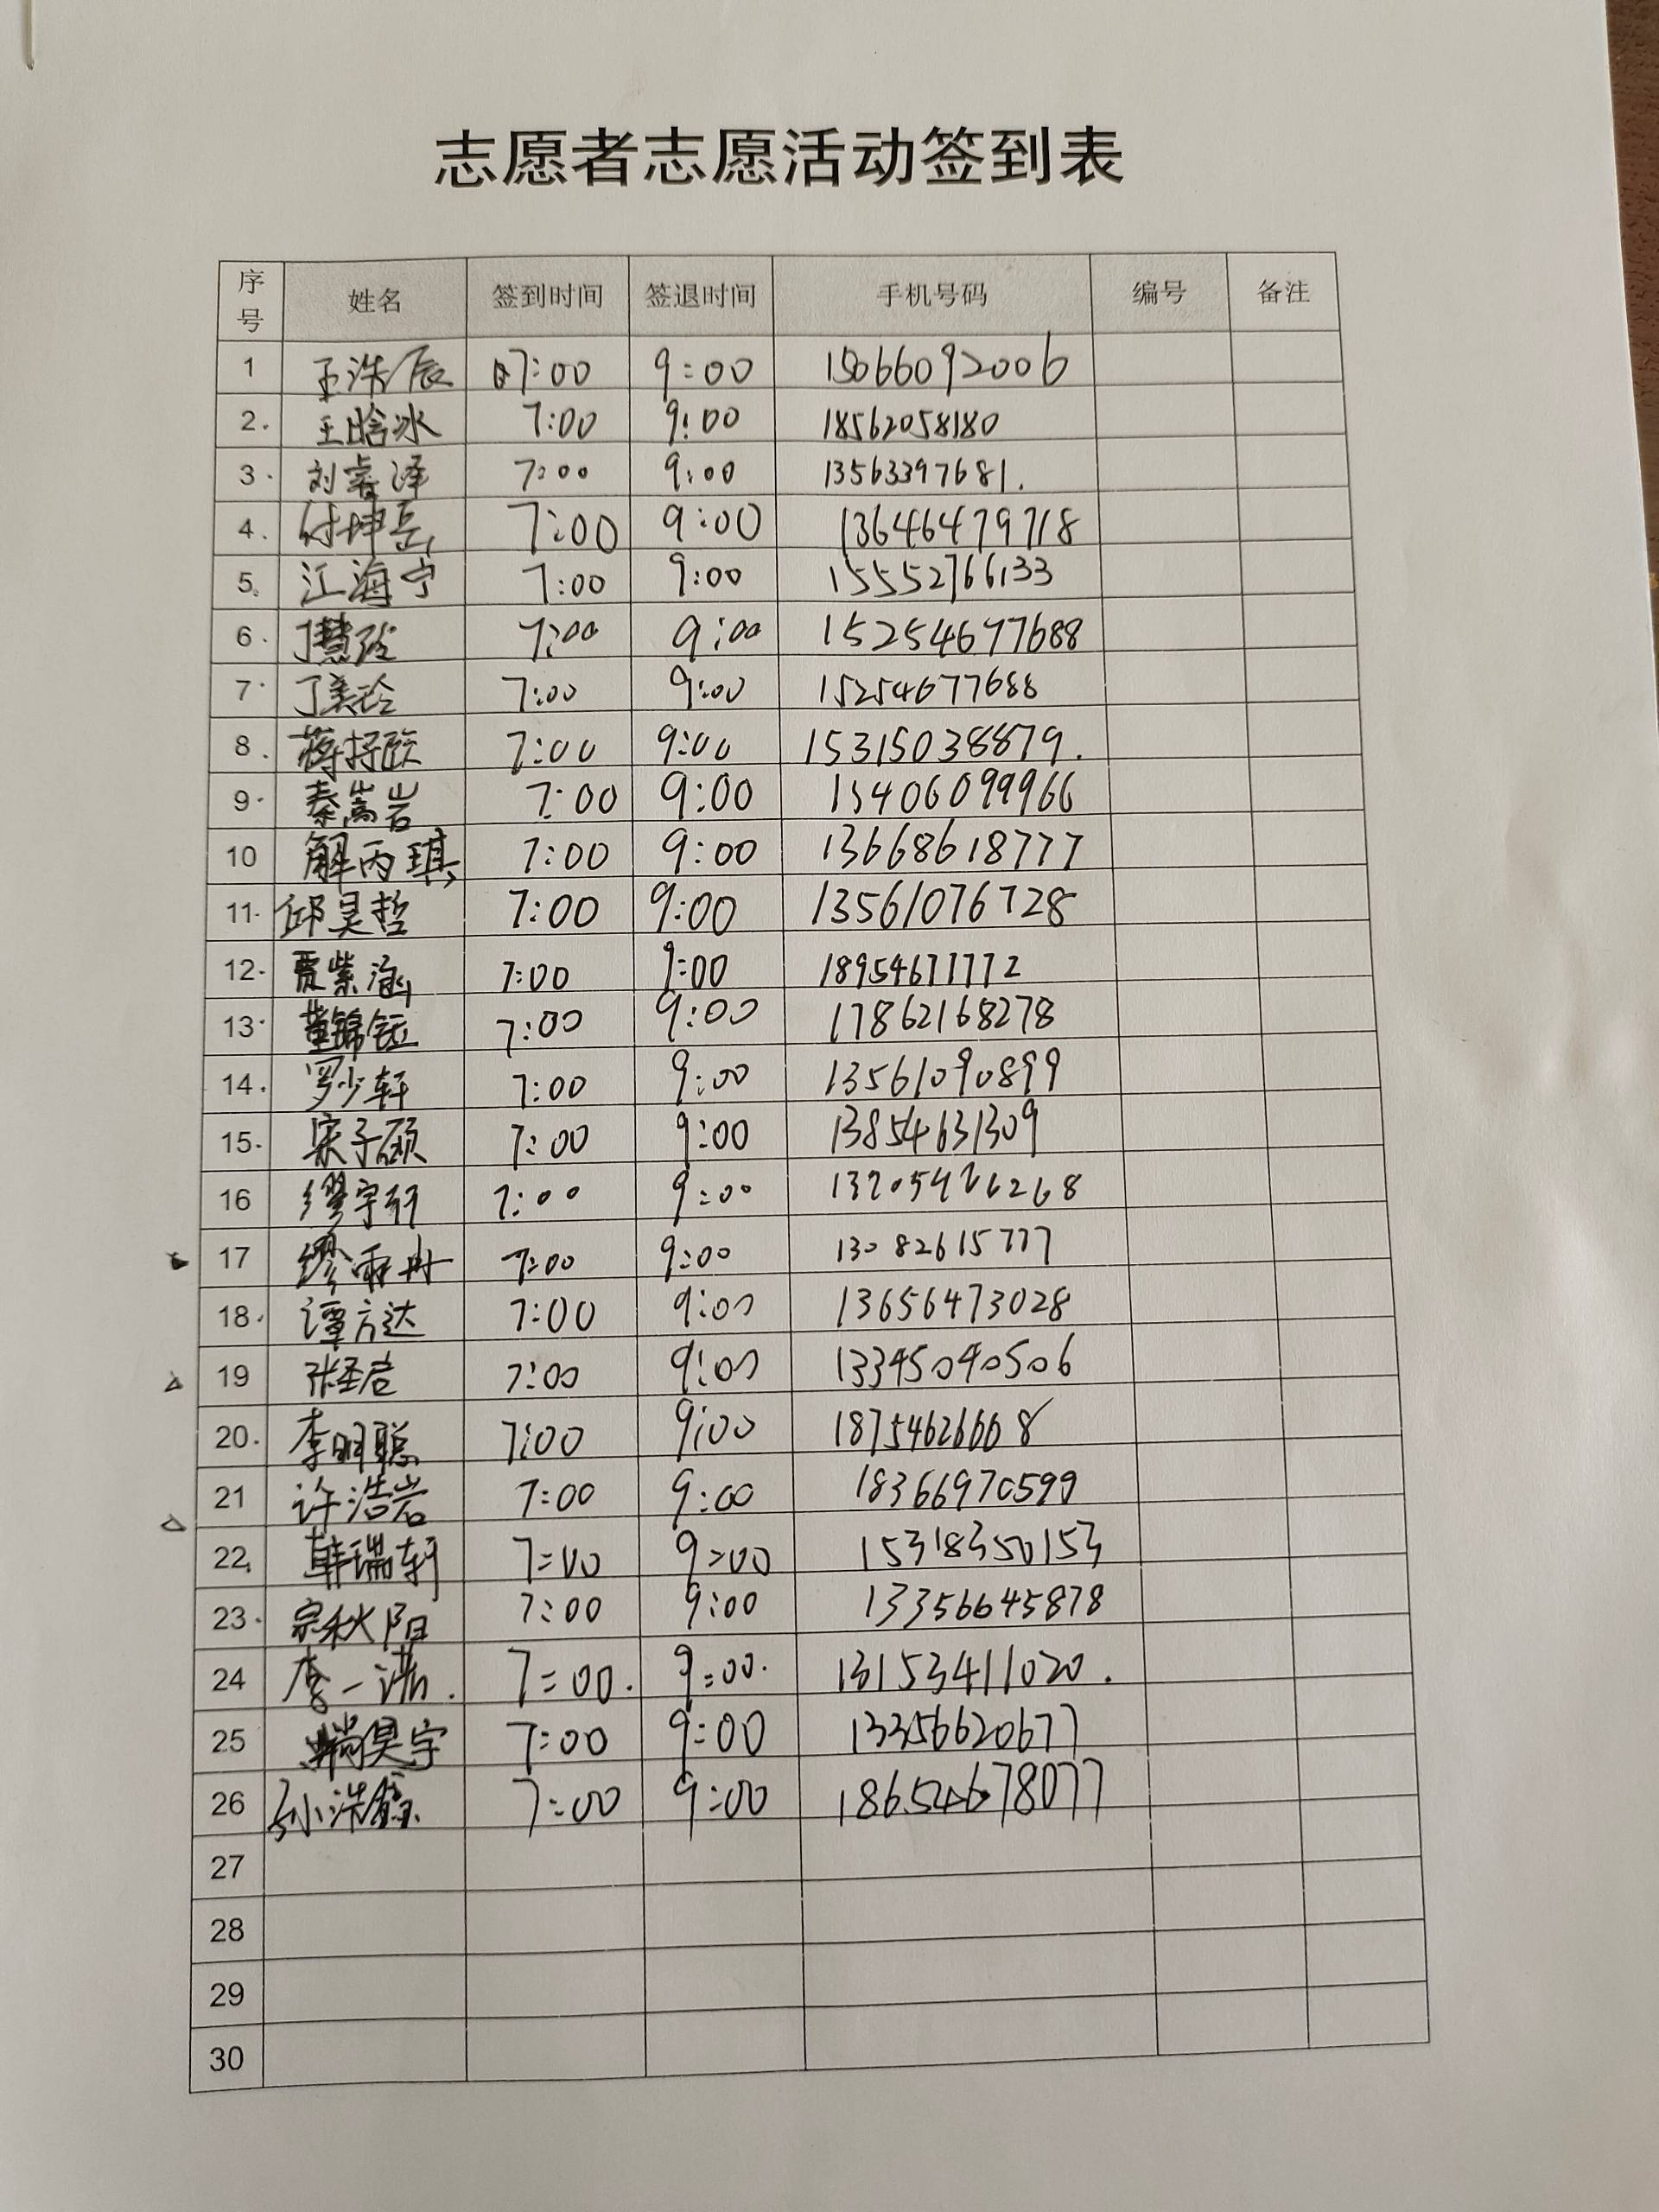 志愿者志愿活动签到表
序号 姓名 签到时间 签退时间 手机号码 编号 备注
1 王浩辰 07:00 9:00 15066092006
2. 王晗冰 7:00 9:00 18562058180
3. 刘睿泽 7:00 9:00 13563397681.
4. 付坤岳 7:00 9:00 13646479718
5. 江海宁 7:00 9:00 15552766133
6. 丁慧玲 7:00 9:00 15254677688
7. 丁美玲 7:00 9:00 15254677688
8. 蒋抒欧 7:00 9:00 15315038879.
9. 秦嵩岩 7:00 9:00 15406099966
10 解丙琪 7:00 9:00 13668618777
11. 邱昊哲 7:00 9:00 13561076728
12. 贾紫涵 7:00 9:00 18954677772
13. 董锦钰 7:00 9:00 17862168278
14. 罗少轩 7:00 9:00 13561090899
15. 宋子硕 7:00 9:00 13854631309
16 缪宇轩 7:00 9:00
17 缪雨冉 7:00 9:00 13082615777
18. 谭方达 7:00 9:00 13656473028
19 张圣启 7:00 9:00 13345090506
20. 李明聪 7:00 9:00 18754626668
21 许浩岩 7:00 9:00 18366970599
22. 韩瑞轩 7:00 9:00 15318350153
23. 宗秋阳 7:00 9:00 13356645878
24 李一诺. 7:00. 9:00. 13153411020.
25 尚昊宇 7:00 9:00 13356620677
26 孙浩鑫 7:00 9:00 18654678077
27
28
29
30